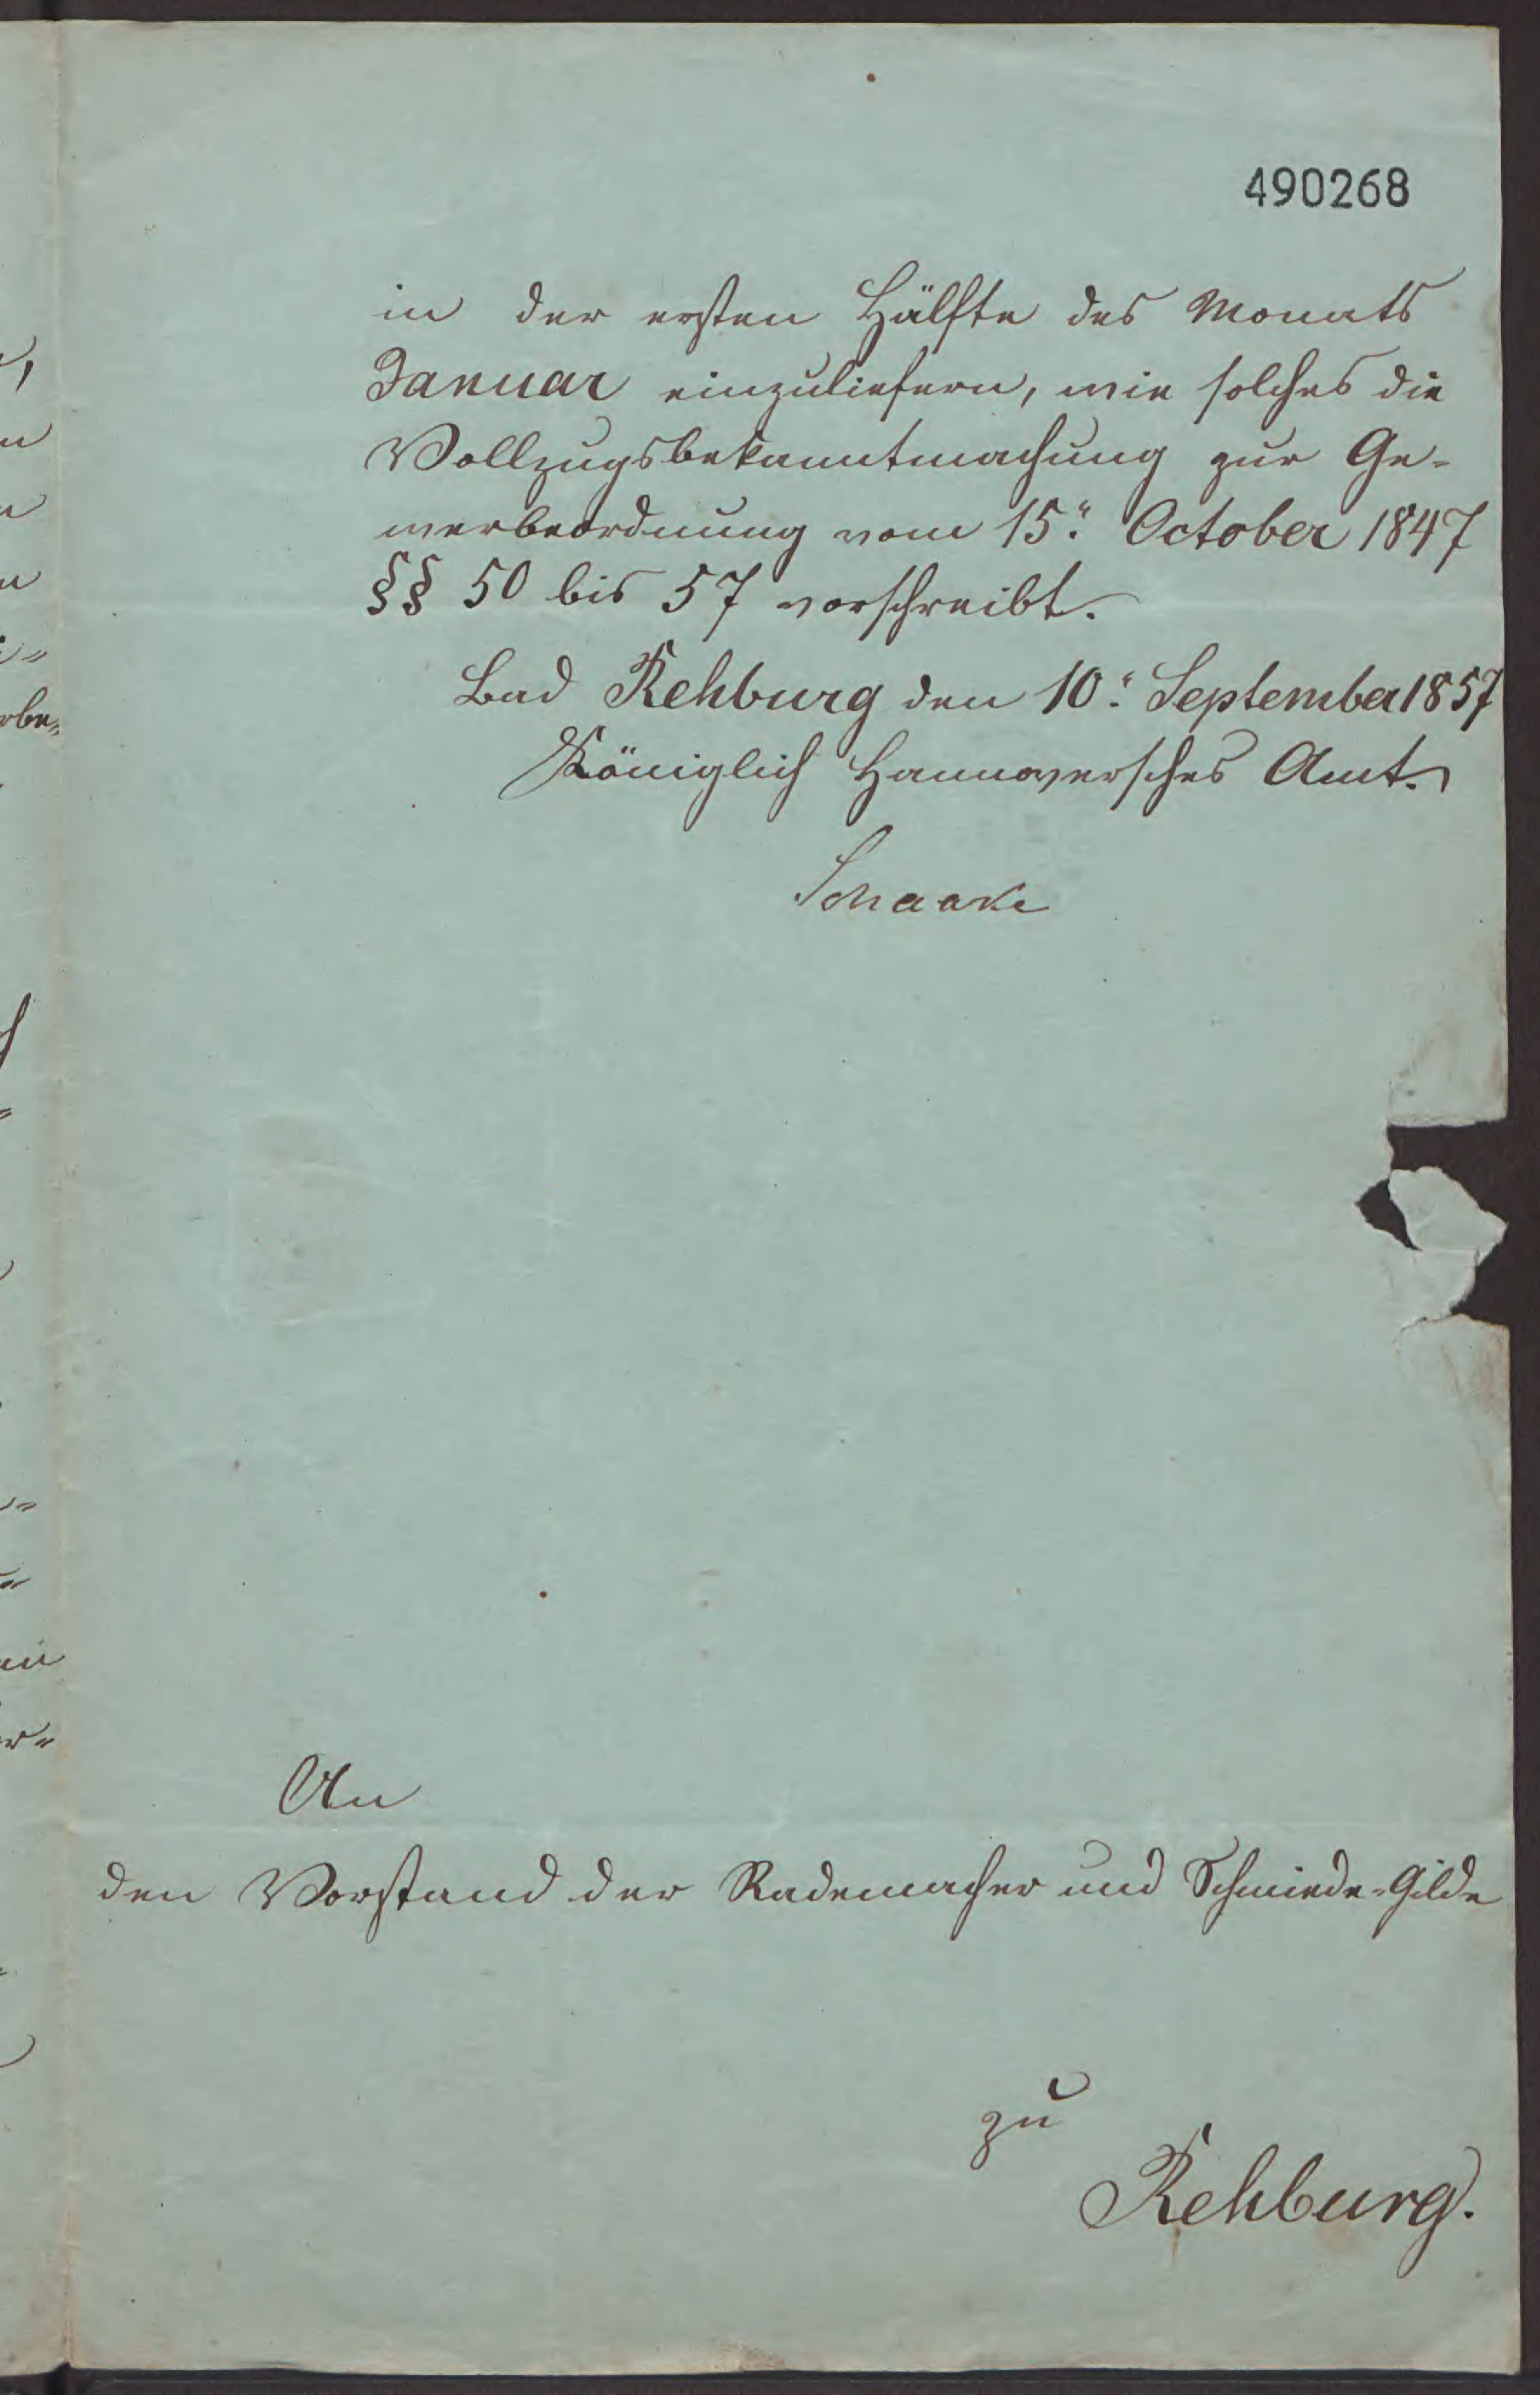 490268
in der ersten Hälfte des Monats
Januar einzuliefern, wie solches die
Vollzugsbekanntmachung zur Ge-
werbeordnung vom 15. October 1847
§§ 50 bis 57 vorschreibt.
Bad Rehburg den 10. September 1857
Königlich Hannoversches Amt.
Schaake
An
den Vorstand der Rademacher und Schmiede-Gilde
zu
Rehburg.